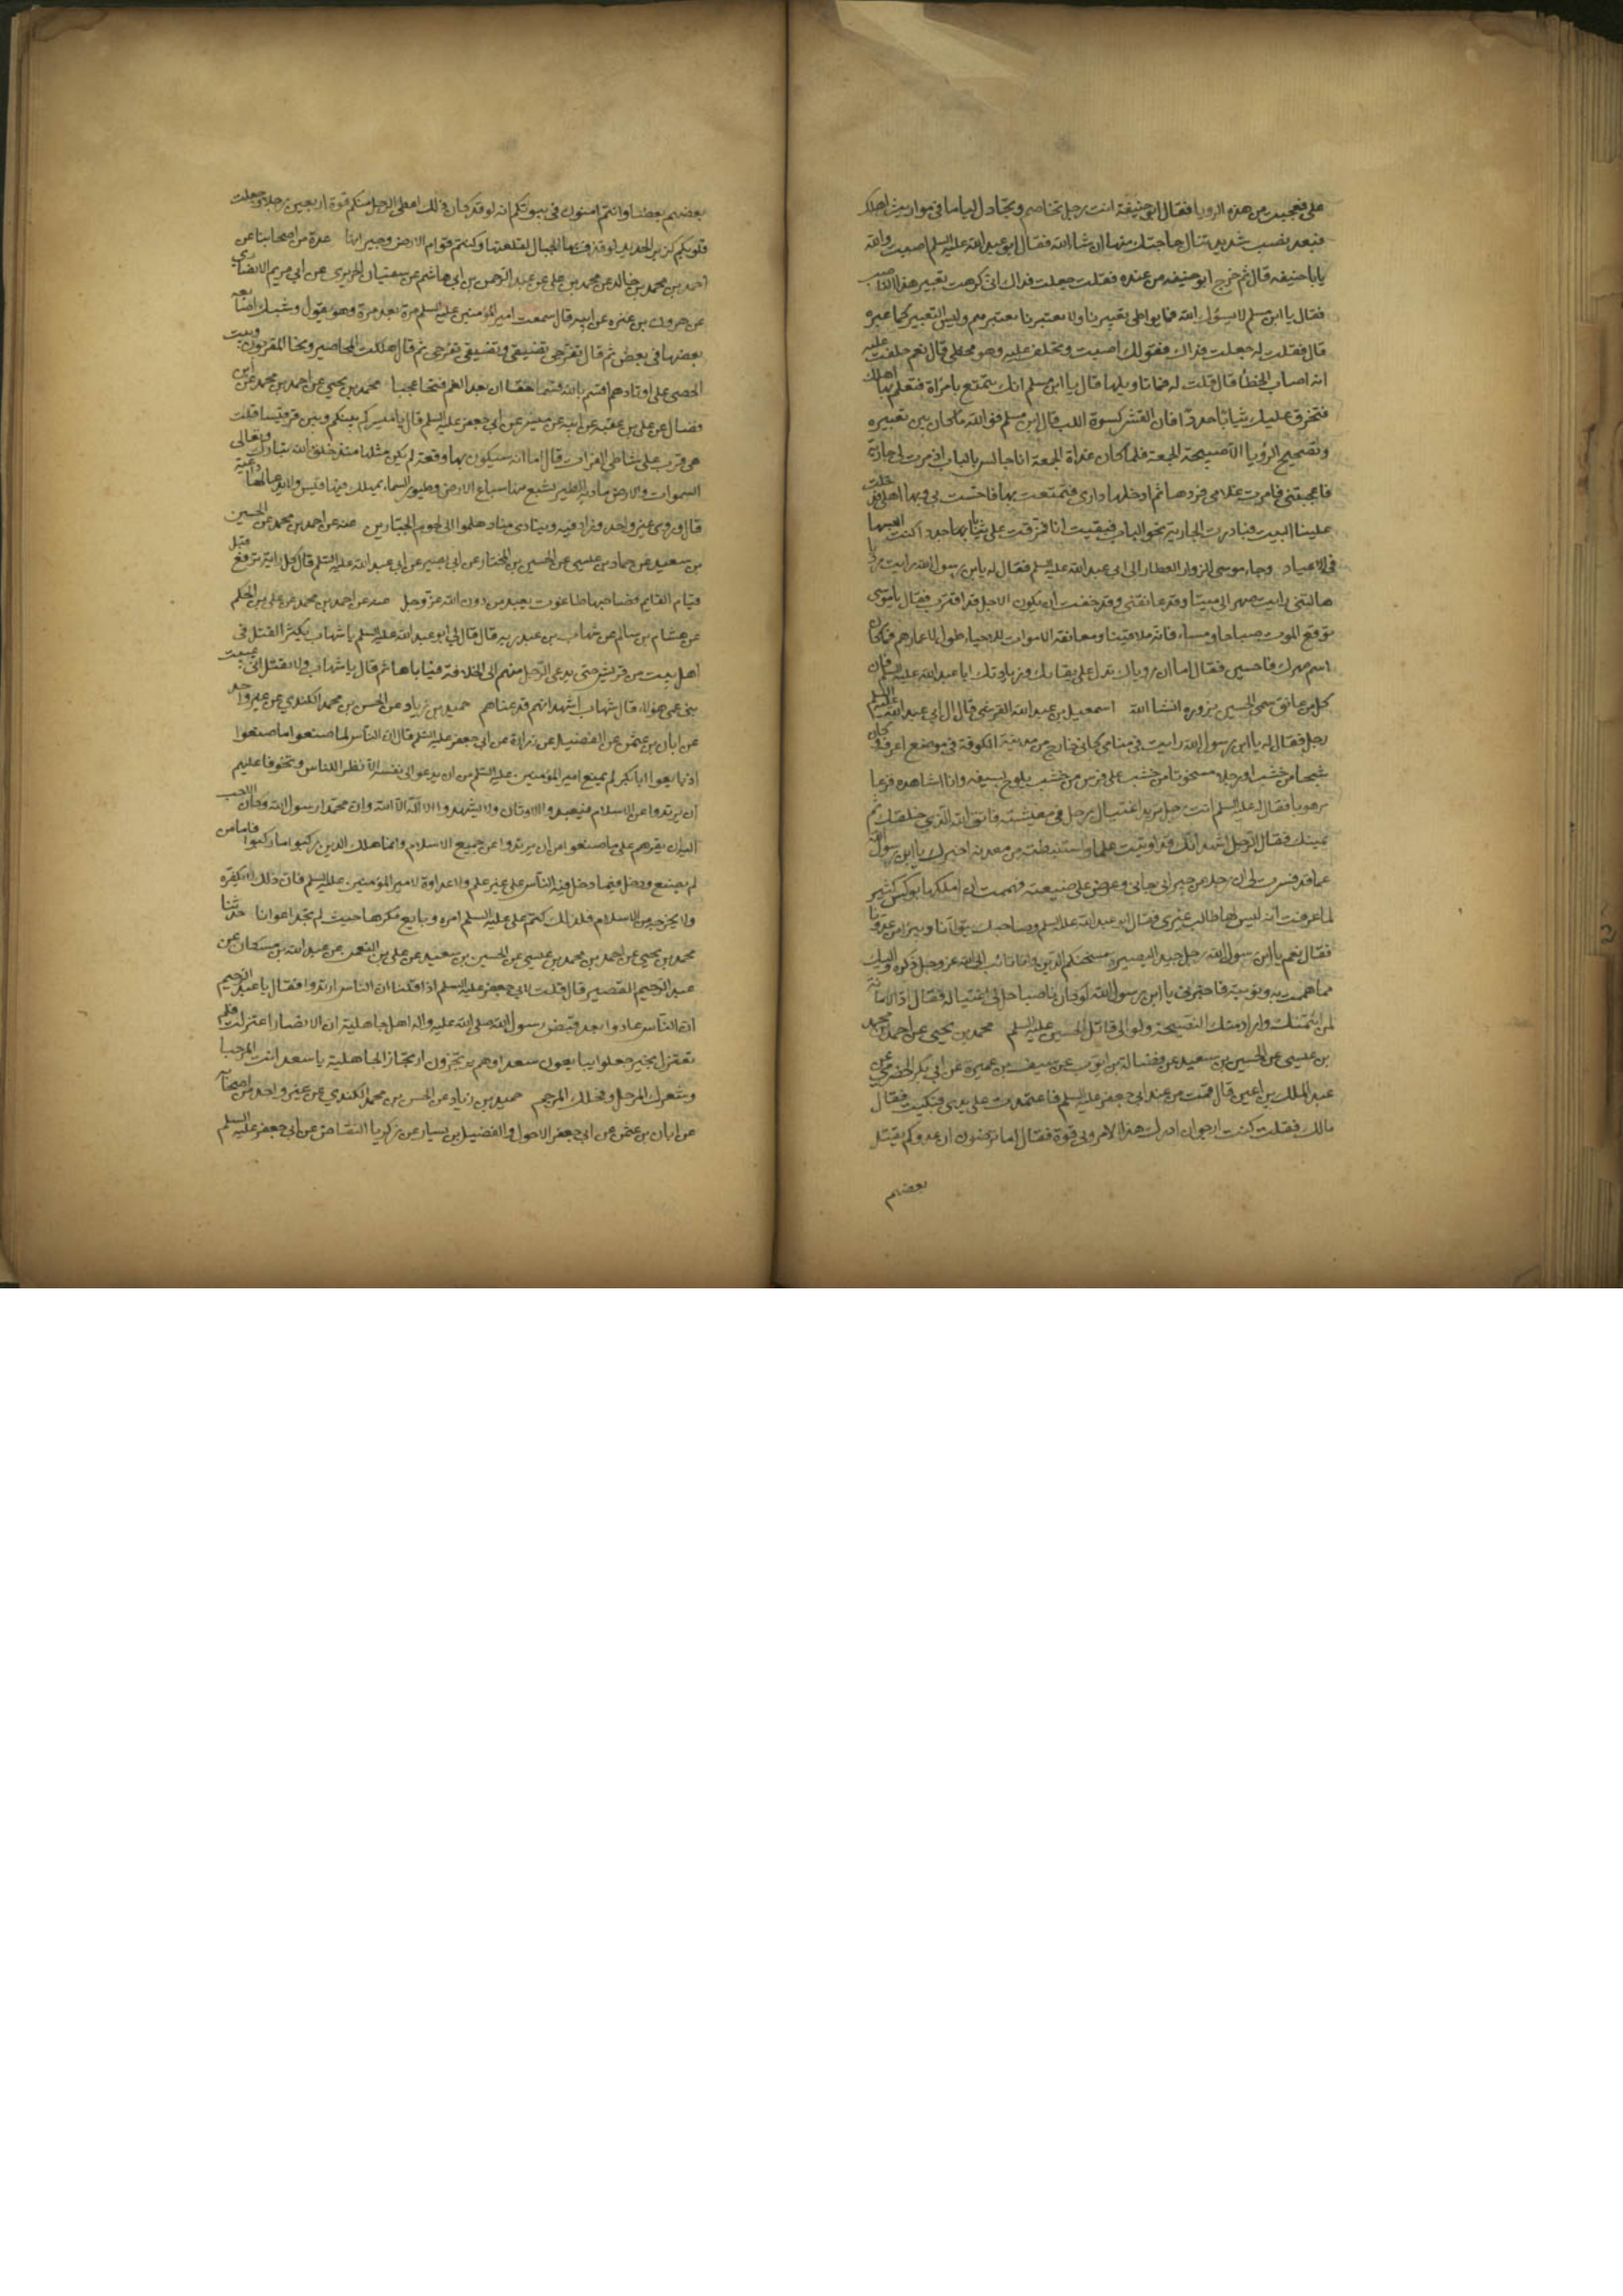 علی فتعجبت من هذه الرویا فقال ابو حنیفة انت رجل تخاصم وتجادل لیاما فی مواریث اهلک
فبعد نصب شدید تنال حاجتک منها ان شاء الله فقال ابو عبد الله علیه السلم اصبت والله
یا با حنیفه قال ثم خرج ابو حنیفه من عنده فقلت جعلت فداک انی کرهت تعبیر هذا الناصب
فقال یا ابن مسلم لا یسؤک الله فما یواطی تعبیرنا ولا تعبیرنا تعبیرهم ولیس التعبیر کما عبره
قال فقلت له جعلت فداک فقولک اصبت وتحلف علیه وهو مخطی قال نعم حلفت علیه
انه اصاب الخطأ قال قلت له فما تاویلها قال یا ابن مسلم انک تتمتع بامرأة فتعلم بها اهلک
فتخرق علیک ثیابا جددا فان القشر کسوة اللب قال ابن مسلم فوالله ما کان بین تعبیره
وتصحیح الرؤیا الا صبیحة الجمعة فلما کان غداة الجمعة انا جالس بالباب اذ مرت بی جاریة
فاعجبتنی فامرت غلامی فردها ثم ادخلها داری فتمتعت بها فاحست بی وبها اهلی فدخلت
علینا البیت فبادرت الجاریة نحو الباب فبقیت انا فمزقت علی ثیابا جددا کنت البسها
فی الاعیاد وجاء موسی الزوار العطار الی ابی عبد الله علیه السلم فقال له یا بن رسول الله رایت رؤیا
هالتنی رایت صهرا لی میتا وقد عانقنی وقد خفت ان یکون الاجل قد اقترب فقال یا موسی
توقع الموت صباحا ومساء فانه ملاقینا ومعانقة الاموات للاحیاء طول لاعمارهم فما کان
اسم صهرک قال حسین فقال اما ان رویاک تدل علی بقائک وزیارتک ابا عبد الله علیه السلم فان
کل من عانق سمی الحسین یزوره انشا الله اسمعیل بن عبد الله القرشی قال اتی ابی عبد الله علیه السلم
رجل فقال له یا ابن رسول الله رایت فی منامی کانی خارج من مدینة الکوفة فی موضع اعرفه وکان
شبحا من خشب او رجلا منحوتا من خشب علی فرس من خشب یلوح بسیفه وانا اشاهده فزعا
مرعوبا فقال له علیه السلم انت رجل ترید اغتیال رجل فی معیشته فاتق الله الذی خلقک ثم
یمیتک فقال الرجل اشهد انک قد اوتیت علما واستنبطته من معدنه اخبرک یا ابن رسول الله
عما قد فسرت لی ان رجلا من جیرانی جاءنی وعرض علی ضیعته فهممت ان املکها بوکس کثیر
لما عرفت انه لیس لها طالب غیری فقال ابو عبد الله علیه السلم وصاحبک یتولانا ویبرا من عدونا
فقال نعم یا ابن رسول الله رجل جید البصیرة مستحکم الدین وانا تائب الی الله عز وجل ذکره والیک
مما هممت به ونویته فاخبرنی یا ابن رسول الله لو کان ناصبا حل لی اغتیاله فقال اد الامانة
لمن ائتمنک واراد منک النصیحة ولو الی قاتل الحسین علیه السلم محمد بن یحیی عن احمد بن محمد
بن عیسی عن الحسین بن سعید عن فضالة بن ایوب عن سیف بن عمیرة عن ابی بکر الحضرمی عن
عبد الملک بن اعین قال قمت من عند ابی جعفر علیه السلم فاعتمدت علی یدی فبکیت فقال
مالک فقلت کنت ارجو ان ادرک هذا الامر وبی قوة فقال اما ترضون ان عدوکم یقتل
بعضهم
بعضهم بعضا وانتم امنون فی بیوتکم انه لو قد کان ذلک اعطی الرجل منکم قوة اربعین رجلا وجعلت
قلوبکم کزبر الحدید لو قذف بها الجبال لقلعتها وکنتم قوام الارض وجیرانها عدة من اصحابنا عن
احمد بن محمد بن خالد عن محمد بن علی عن عبد الرحمن بن ابی هاشم عن سفیان الجریری عن ابی مریم الانصاری
عن هرون بن عنتره عن ابیه قال سمعت امیر المؤمنین علیه السلم مرة بعد مرة وهو یقول وشبک اصابعه
بعضها فی بعض ثم قال تفرجی تضیقی وتضیقی تفرجی ثم قال هلکت المحاضیر ونجا المقربون وثبت
الحصی علی اوتادهم اقسم بالله قسما حقا ان بعد الغم فتحا عجبا محمد بن یحیی عن احمد بن محمد عن ابن
فضال عن علی بن عقبه عن ابیه عن میسر عن ابی جعفر علیه السلم قال یا میسر کم بینکم وبین قرقیسا قلت
هی قریب علی شاطی الفرات قال اما انه سیکون بها وقعة لم یکن مثلها منذ خلق الله تبارک وتعالی
السموات والارض مادبة للطیر تشبع منها سباع الارض وطیور السماء یهلک فیها قیس ولا یدعی لها داعیة
قال وروی غیر واحد وزاد فیه وینادی مناد هلموا الی لحوم الجبارین عنه عن احمد بن محمد عن الحسین
بن سعید عن حماد بن عیسی عن الحسین بن المختار عن ابی بصیر عن ابی عبد الله علیه السلم قال کل رایة ترفع قبل
قیام القایم فصاحبها طاغوت یعبد من دون الله عز وجل عنه عن احمد بن محمد عن علی بن الحکم
عن هشام بن سالم عن شهاب بن عبد ربه قال قال لی ابو عبد الله علیه السلم یا شهاب یکثر القتل فی
اهل بیت من قریش حتی یدعی الرجل منهم الی الخلافة فیاباها ثم قال یا شهاب ولا تقل انی عنیت
بنی عمی هؤلاء قال شهاب اشهد انه قد عناهم حمید بن زیاد عن الحسن بن محمد الکندی عن غیر واحد
عن ابان بن عثمن عن الفضیل عن زرارة عن ابی جعفر علیه السلم قال ان الناس لما صنعوا ما صنعوا
اذ بایعوا ابا بکر لم یمنع امیر المؤمنین علیه السلم من ان یدعو الی نفسه الا نظرا للناس وتخوفا علیهم
ان یرتدوا عن الاسلام فیعبدوا الاوثان ولا یشهدوا الا اله الا الله وان محمدا رسول الله وکان الاحب
الیه ان یقرهم علی ما صنعوا من ان یرتدوا عن جمیع الاسلام وانما هلک الذین رکبوا ما رکبوا فاما من
لم یصنع ودخل فیما دخل فیه الناس علی غیر علم ولا عداوة لامیر المؤمنین علیه السلم فان ذلک لا یکفره
ولا یخرجه من الاسلام فلذلک کتم علی علیه السلم امره وبایع مکرها حیث لم یجد اعوانا حدثنا
محمد بن یحیی عن احمد بن محمد بن عیسی عن الحسین بن سعید عن علی بن النعمن عن عبد الله بن مسکان عن
عبد الرحیم القصیر قال قلت لابی جعفر علیه السلم اذا قلنا ان الناس ارتدوا فقال یا عبد الرحیم
ان الناس عادوا بعد قبض رسول الله صلی الله علیه واله اهل جاهلیة ان الانصار اعتزلت فلم
تعتزل بخیر جعلوا یبایعون سعدا وهم یرتجزون ارتجاز الجاهلیة یا سعد انت المرجا
وشعرک المرجل وفحلک المرجم حمید بن زیاد عن الحسن بن محمد الکندی عن غیر واحد من اصحابه
عن ابان بن عثمن عن ابی جعفر الاحول والفضیل بن یسار عن زکریا النقاض عن ابی جعفر علیه السلم